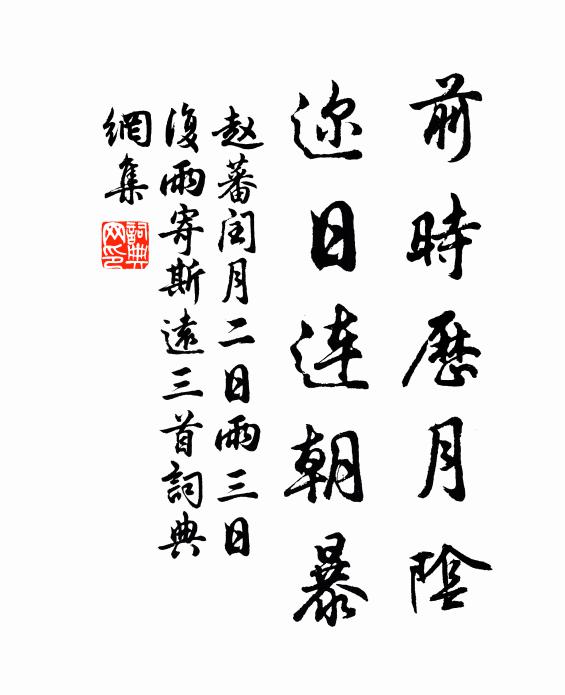 前時歷月陰
迩日連朝暴
赵蕃闰月二日雨三日
復雨寄斯遠三首詞典
網集
詞典
网印